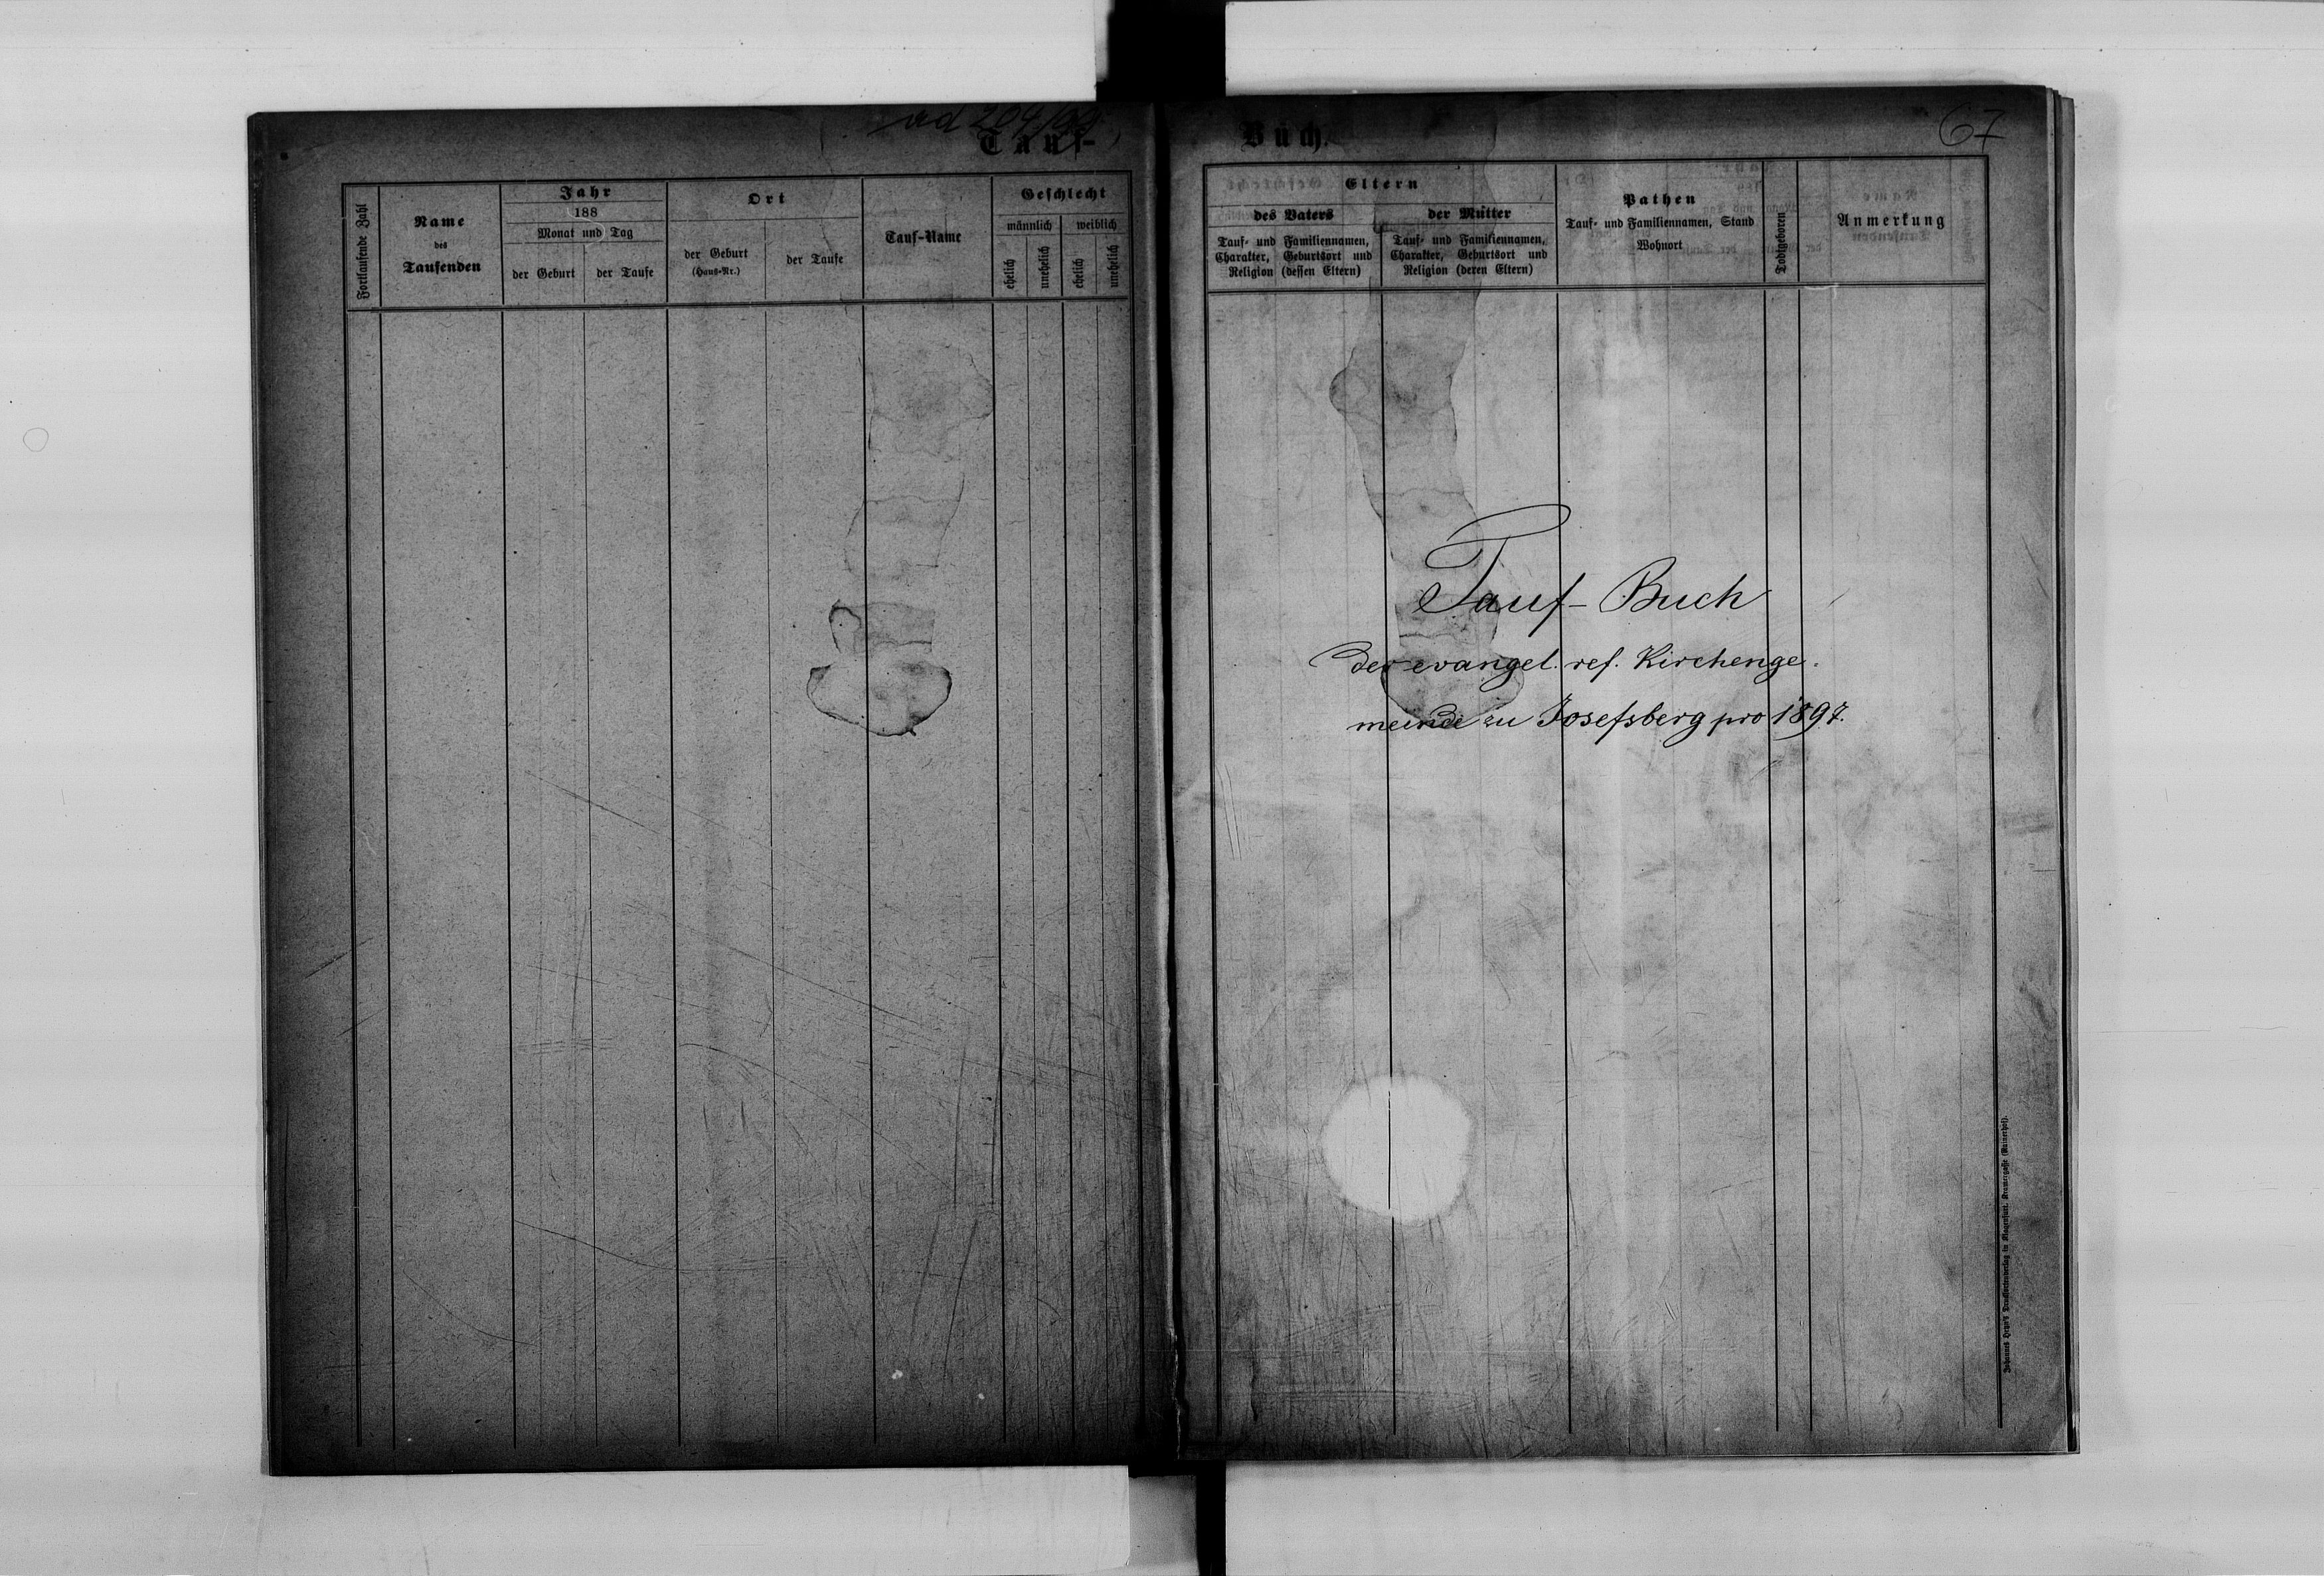 ad 204/
Tauf-
Fortlaufende Zahl
Name
des
Taufenden
Jahr
188
Monat und Tag
der Geburt
der Taufe
Ort
der Geburt
(Haus-Nr.)
der Taufe
Tauf-Name
Geschlecht
männlich
weiblich
ehelich
unehelich
ehelich
unehelich
Buch.
67
Eltern
des Vaters
Tauf- und Familiennamen,
Charakter, Geburtsort und
Religion (dessen Eltern)
der Mutter
Tauf- und Familiennamen,
Charakter, Geburtsort und
Religion (deren Eltern)
Pathen
Tauf- und Familiennamen, Stand
Wohnort
Todtgeboren
Anmerkung
Tauf-Buch
der evangel. ref. Kirchenge-
meinde zu Josefsberg pro 1897.